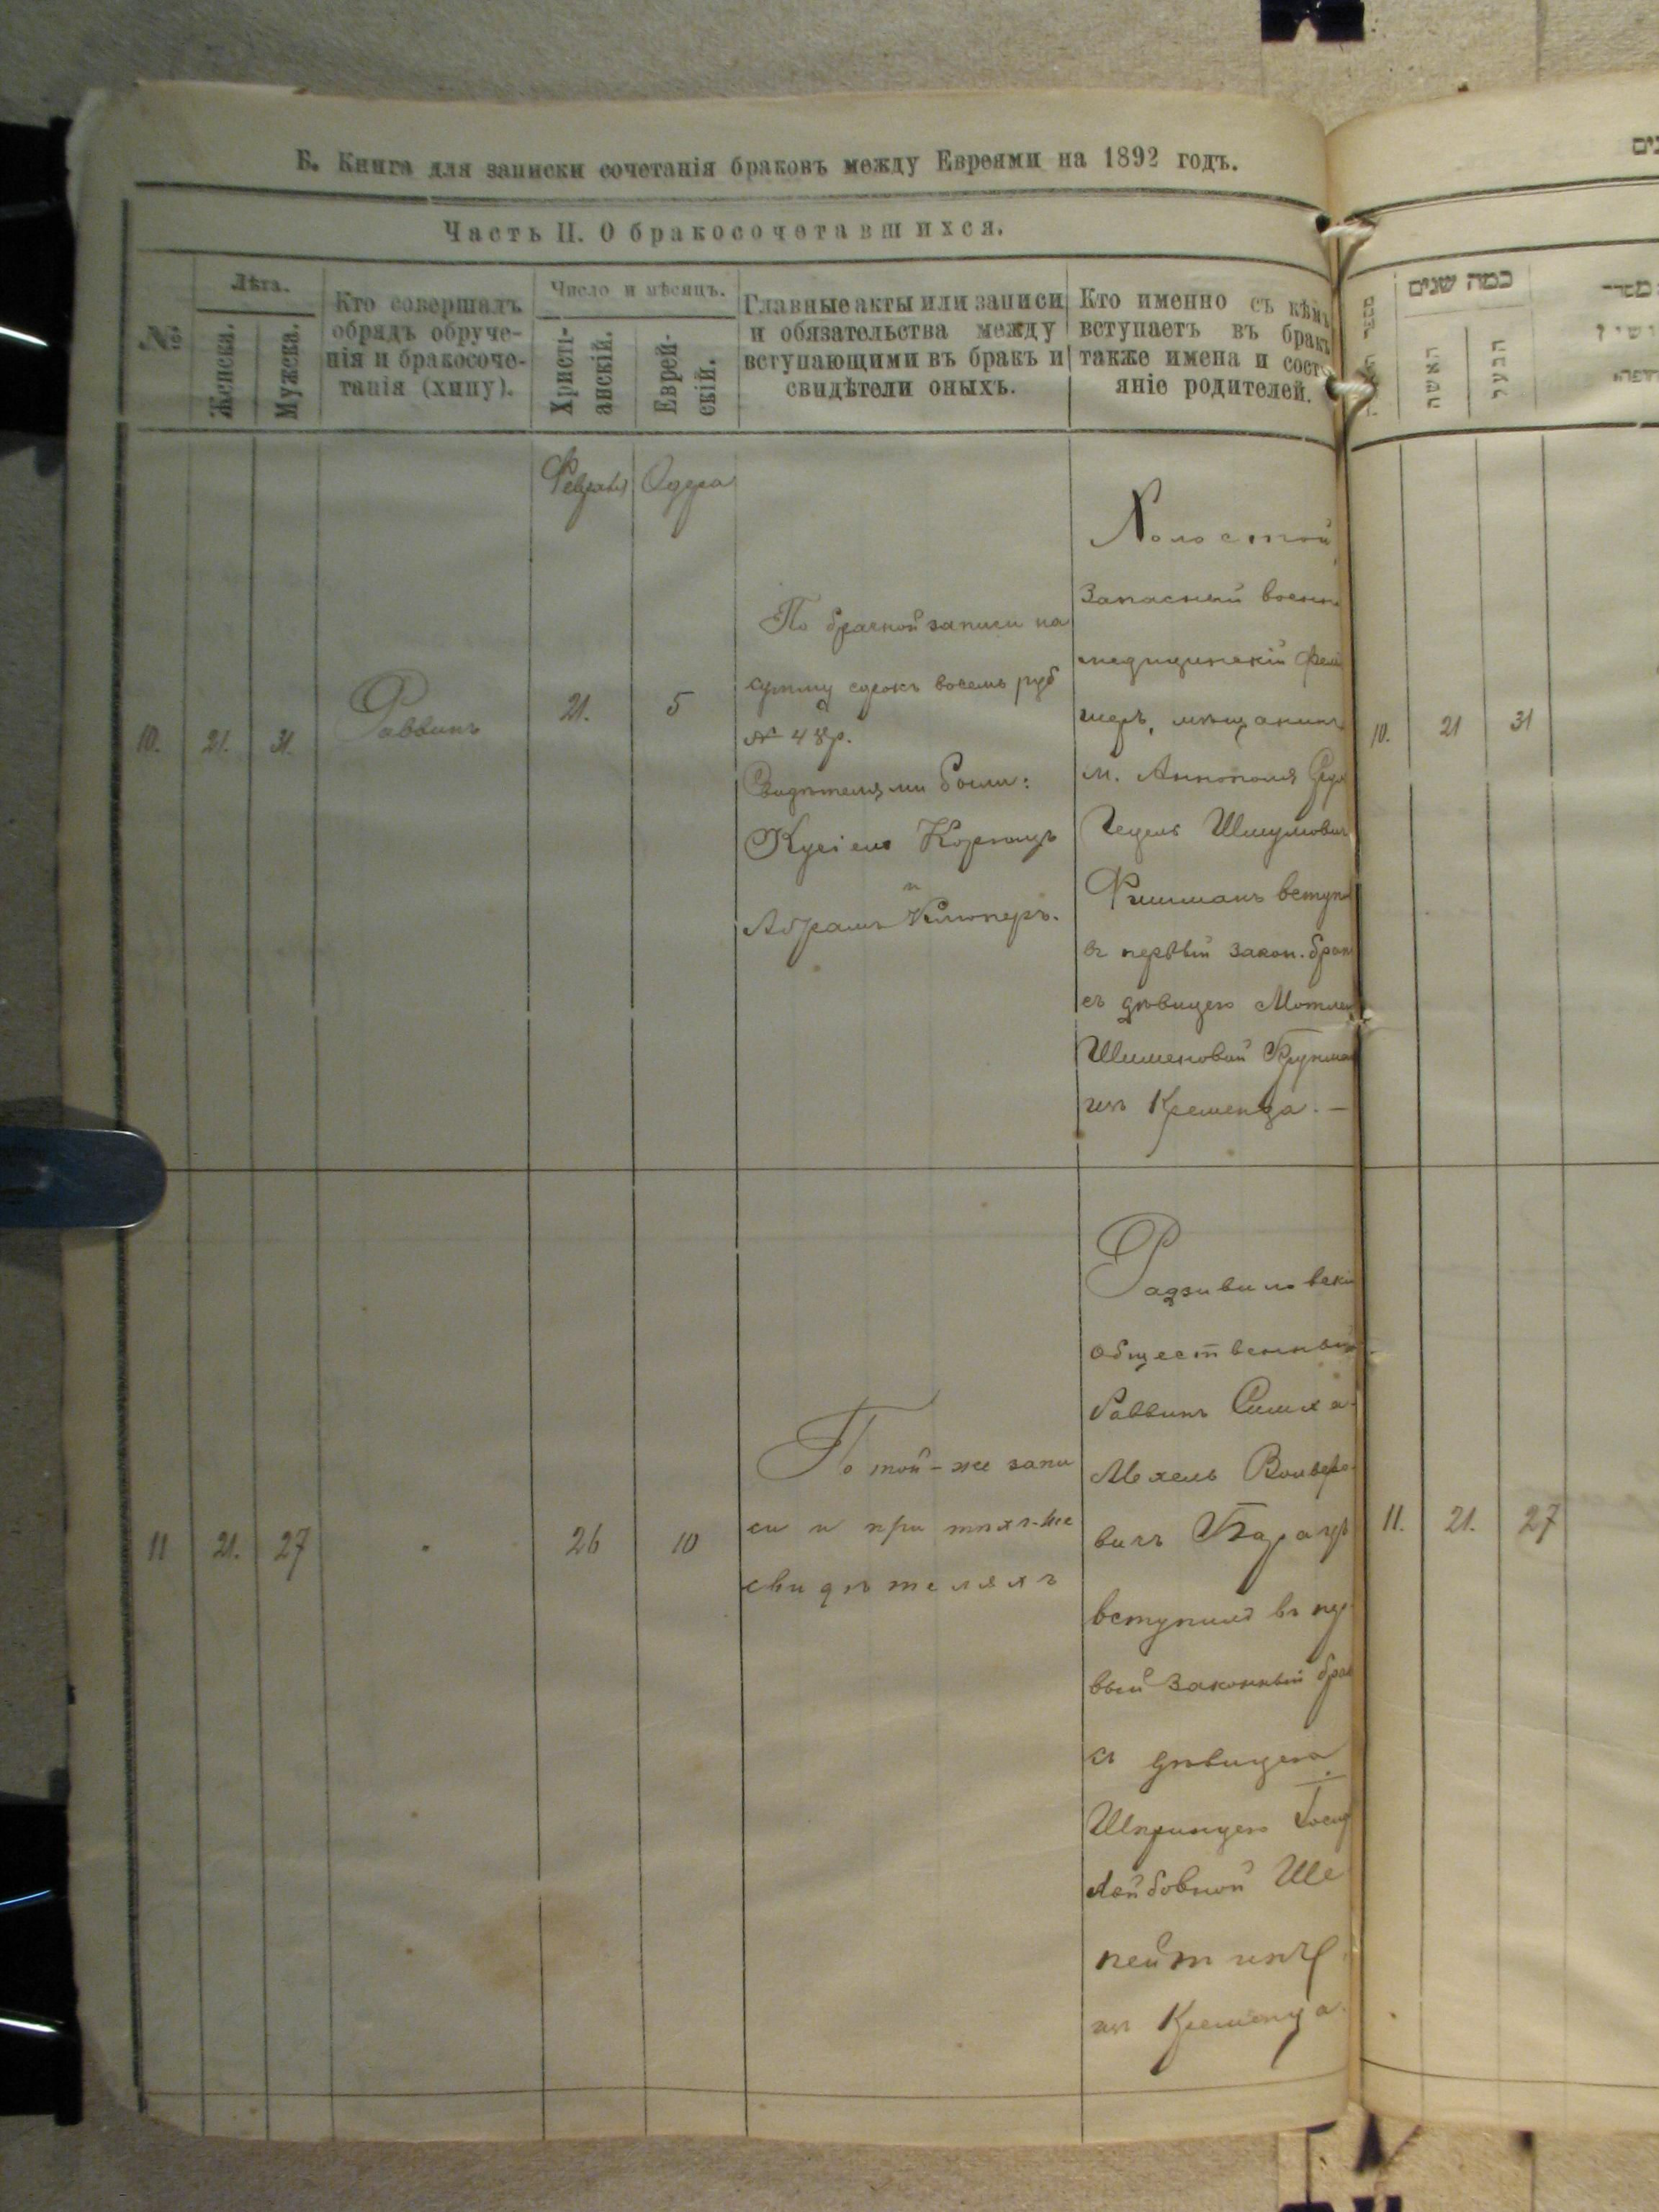 Б. Книга для записки сочетанія браковъ между Евреями на 1892 годъ.
Часть II. О бракосочетавшихся.
№
Лѣта.
Женска.
Мужеска.
Кто совершалъ
обрядъ обруче-
нія и бракосоче-
танія (хипу).
Число и мѣсяцъ.
Христі-
анскій.
Еврей-
скій.
Главные акты или записи
и обязательства между
вступающими въ брак и
свидѣтели оныхъ.
Кто именно съ кѣмъ
вступаетъ въ бракъ
также имена и сост
яніе родителей.
Февраля
Одера
10.
21.
31.
Раввинъ
21.
5
По брачной записи на
сумму сорокъ восемь руб
№ 48р.
Свидѣтелями были:
Кусіель
и
Абрамъ Клюперъ.
Холостой
Запасный военно
медицинскій фель
шеръ, мѣщанинъ
м. Аннополя
Шмулович
Фишманъ вступ
въ первый закон. брак
съ дѣвицею
Шименовой
изъ Кременца. —
11
21.
27
26
10
По той-же запи
си и при тѣхъ-же
свидѣтеляхъ
Радзивиловскій
общественный
Раввинъ Симха
Мехель
вичъ
вступилъ въ пер
вый законный брак
съ дѣвицею
Шпринцею Іосиф
Лейбовной Ше
из Кременца.
כמה שנים
האשה
הבעל
10.
21
31
11.
21.
27